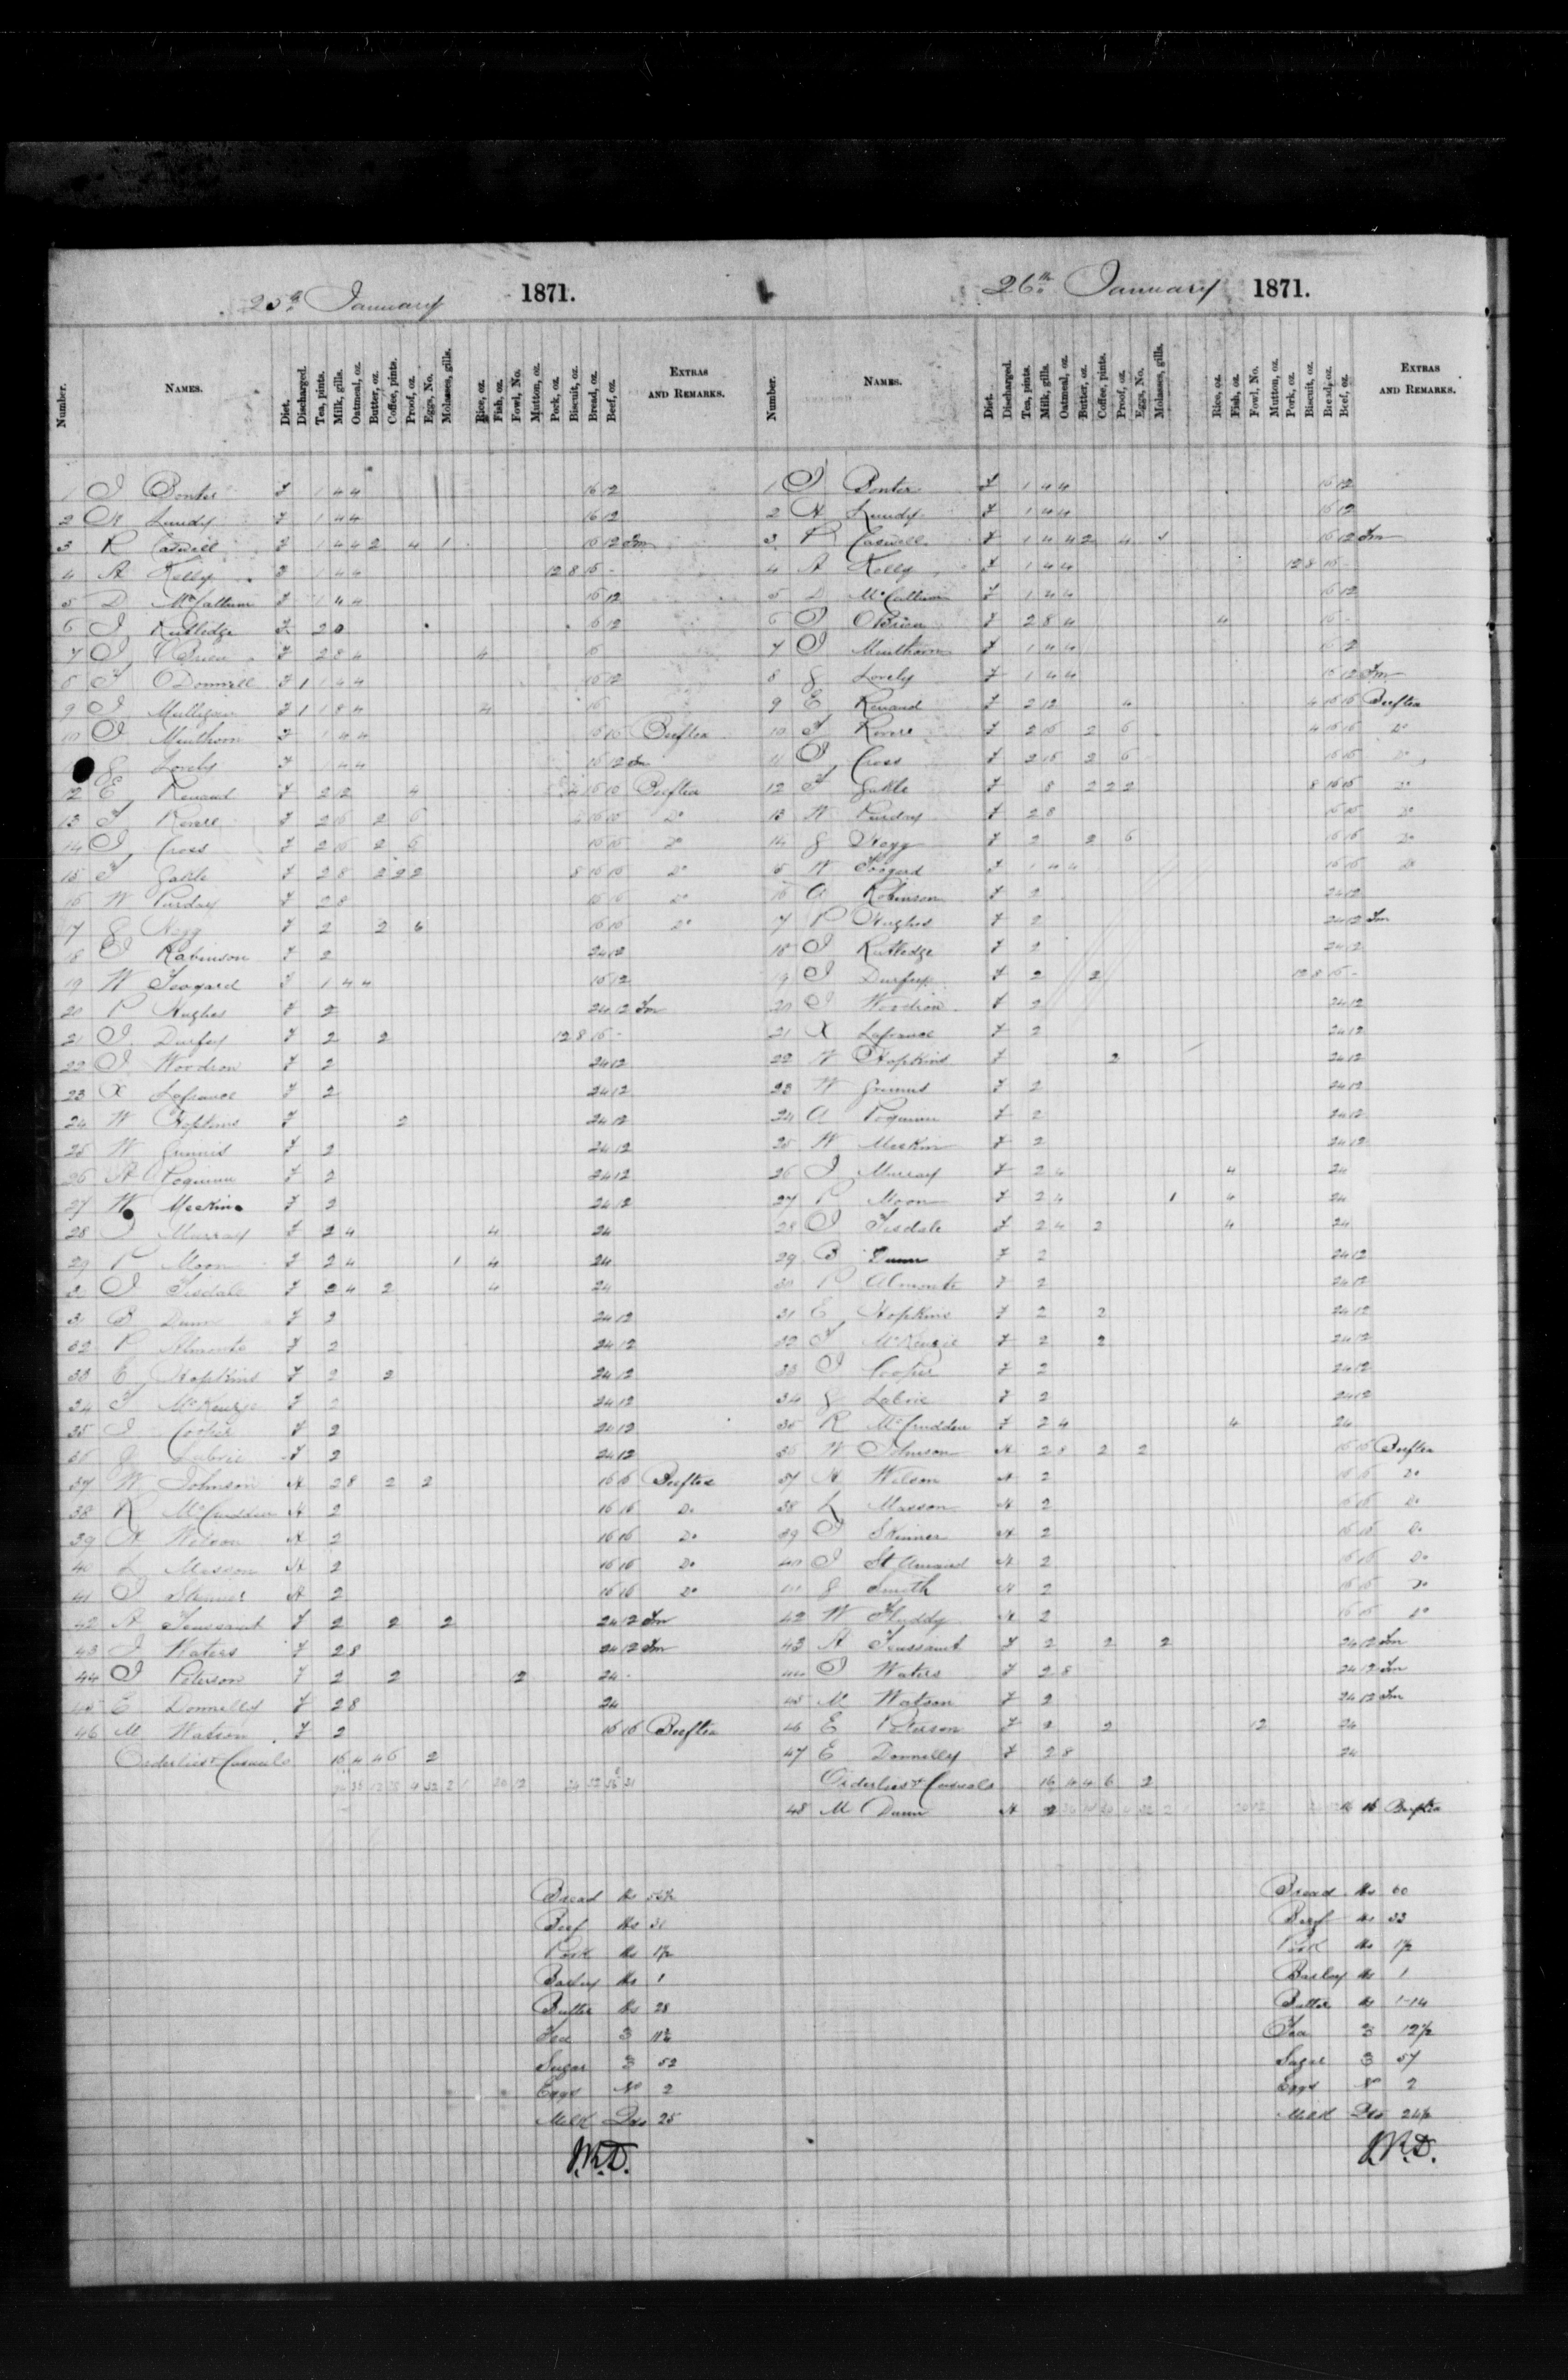 25th January 1871.
Number. NAMES. Diet. Discharged. Tea, pints. Milk, gills. Oatmeal, oz. Butter, oz. Coffee, pints. Proof, oz. Eggs, No. Molasses, gills. Rice, oz. Fish, oz. Fowl, No. Mutton, oz. Pork, oz. Biscuit, oz. Bread, oz. Beef, oz. EXTRAS AND REMARKS.
1 J Ponter F 1 4 4 16 12
2 H Lundy F 1 4 4 16 12
3 R Caswell F 1 4 4 2 4 1 16 12
4 A Kelly F 1 4 4 12 8 16 -
5 D McCallum F 1 4 4 16 12
6 J Rutledge F 2 16 12
7 J O'Brien F 2 8 4 4 16
8 F O'Donnell F 1 1 4 4 16 12
9 J Mulligan F 1 1 8 4 4 16
10 J Minthorn F 1 4 4 16 16 Beeftea
G Lovely F 1 4 4 16 12
12 E Renaud F 2 2 4 4 16 16 Beeftea
13 F Revere F 2 16 2 6 4 16 16 Do
14 J Cross F 2 16 2 6 16 16 Do
15 F Galtle F 2 8 2 2 2 8 16 16 Do
16 W Purday F 2 8 16 16 Do
17 G Hegg F 2 2 6 16 16 Do
18 J Robinson F 2 24 12
19 W F 1 4 4 16 12
20 P Hughes F 2 24 12
21 J Durfey F 2 2 12 8 16 -
22 J Woodson F 2 24 12
23 X Lafrance F 2 24 12
24 W Hopkins F 2 24 12
25 W F 2 24 12
26 A Poquinn F 2 24 12
27 W Meekins F 2 24 12
28 J Murray F 2 4 4 24
29 P Moon F 2 4 1 4 24
30 J Tisdale F 2 4 2 4 24
31 B Dunn F 2 24 12
32 P Almonte F 2 24 12
33 E Hopkins F 2 2 24 12
34 F McKenzie F 2 24 12
35 J Cooper F 2 24 12
36 G Labrie F 2 24 12
37 W Johnson H 2 8 2 2 16 16 Beeftea
38 R McCrudden H 2 16 16 Do
39 H Wilson H 2 16 16 Do
40 L Masson H 2 16 16 Do
41 J Skinner H 2 16 16 Do
42 A Toussaint F 2 2 2 24 12
43 J Waters F 2 8 24 12
44 J Peterson F 2 2 12 24 -
45 E Donnelly F 2 8 24
46 M Watson F 2 16 16 Beeftea
Orderlies & Casuals 16 4 4 6 2
Bread lbs 56½
Beef lbs 31
Pork lbs 1½
Barley lbs 1
Butter 28
Tea 3 11½
Sugar 3 52
Eggs No 2
Milk 25
J.R.D.
26th January 1871.
Number. NAMES. Diet. Discharged. Tea, pints. Milk, gills. Oatmeal, oz. Butter, oz. Coffee, pints. Proof, oz. Eggs, No. Molasses, gills. Rice, oz. Fish, oz. Fowl, No. Mutton, oz. Pork, oz. Biscuit, oz. Bread, oz. Beef, oz. EXTRAS AND REMARKS.
1 J Ponter F 1 4 4 16 12
2 H Lundy F 1 4 4 16 12
3 R Caswell F 1 4 4 2 4 1 16 12
4 A Kelly F 1 4 4 12 8 16 -
5 D McCallum F 1 4 4 16 12
6 J O'Brien F 2 8 4 4 16 -
7 J Minthorn F 1 4 4 16 12
8 G Lovely F 1 4 4 16 12
9 E Renaud F 2 12 4 4 16 16 Beeftea
10 F Revere F 2 16 2 6 4 16 16 Do
11 J Cross F 2 16 2 6 16 16 Do
12 F Galtle F 8 2 2 2 8 16 16 Do
13 W Purday F 2 8 16 16 Do
14 G Hegg F 2 2 6 16 16 Do
15 W F 1 4 4 16 16 Do
16 A Robinson F 2 24 12
17 P Hughes F 2 24 12
18 J Rutledge F 2 24 12
19 J Durfey F 2 2 12 8 16 -
20 J Woodson F 2 24 12
21 X Lafrance F 2 24 12
22 W Hopkins F 2 24 12
23 W F 2 24 12
24 A Poquinn F 2 24 12
25 W Meekin F 2 24 12
26 J Murray F 2 4 4 24
27 P Moon F 2 4 1 4 24
28 J Tisdale F 2 4 2 4 24
29 B Dunn F 2 24 12
30 P Almonte F 2 24 12
31 E Hopkins F 2 2 24 12
32 F McKenzie F 2 2 24 12
33 J Cooper F 2 24 12
34 G Labrie F 2 24 12
35 R McCrudden F 2 4 4 24
36 W Johnson H 2 8 2 2 16 16 Beeftea
37 H Wilson H 2 16 16 Do
38 L Masson H 2 16 16 Do
39 J Skinner H 2 16 16 Do
40 J St Amand H 2 16 16 Do
41 G Smith H 2 16 16 Do
42 W Huddy H 2 16 16 Do
43 A Toussaint F 2 2 2 24 12
44 J Waters F 2 8 24 12
45 M Watson F 2 24 12
46 E Peterson F 2 2 12 24
47 E Donnelly F 2 8 24
Orderlies & Casuals 16 4 4 6 2
48 M Dunn H 2 16 16 Beeftea
Bread lbs 60
Beef lbs 33
Pork lbs 1½
Barley lbs 1
Butter lbs 1-14
Tea 3 12½
Sugar 3 57
Eggs No 2
Milk 24½
J.R.D.